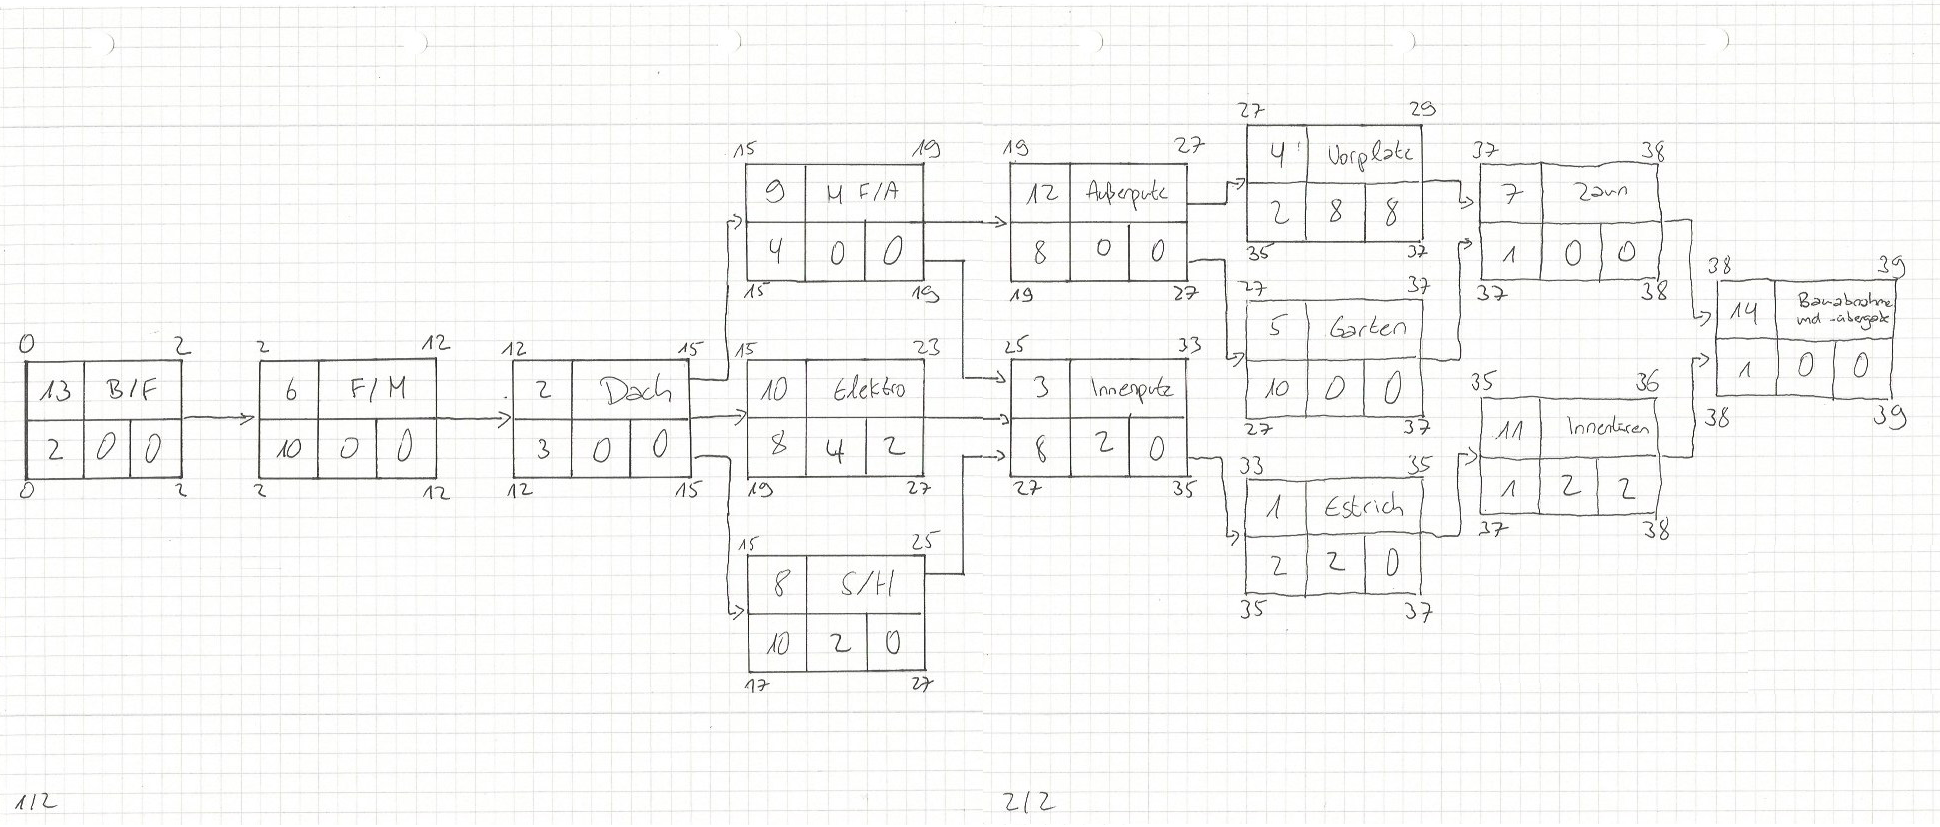 0 2
13 B/F
2 0 0
0 2
2 12
6 F/M
10 0 0
2 12
12 15
2 Dach
3 0 0
12 15
15 19
9 M F/A
4 0 0
15 19
15 23
10 Elektro
8 4 2
19 27
15 25
8 S/H
10 2 0
17 27
1/2
19 27
12 Außenputz
8 0 0
19 27
25 33
3 Innenputz
8 2 0
27 35
27 29
4 Vorplatz
2 8 8
35 37
27 37
5 Garten
10 0 0
27 37
33 35
1 Estrich
2 2 0
35 37
37 38
7 Zaun
1 0 0
37 38
35 36
11 Innentüren
1 2 2
37 38
38 39
14 Bauabnahme
und -übergabe
1 0 0
38 39
2/2